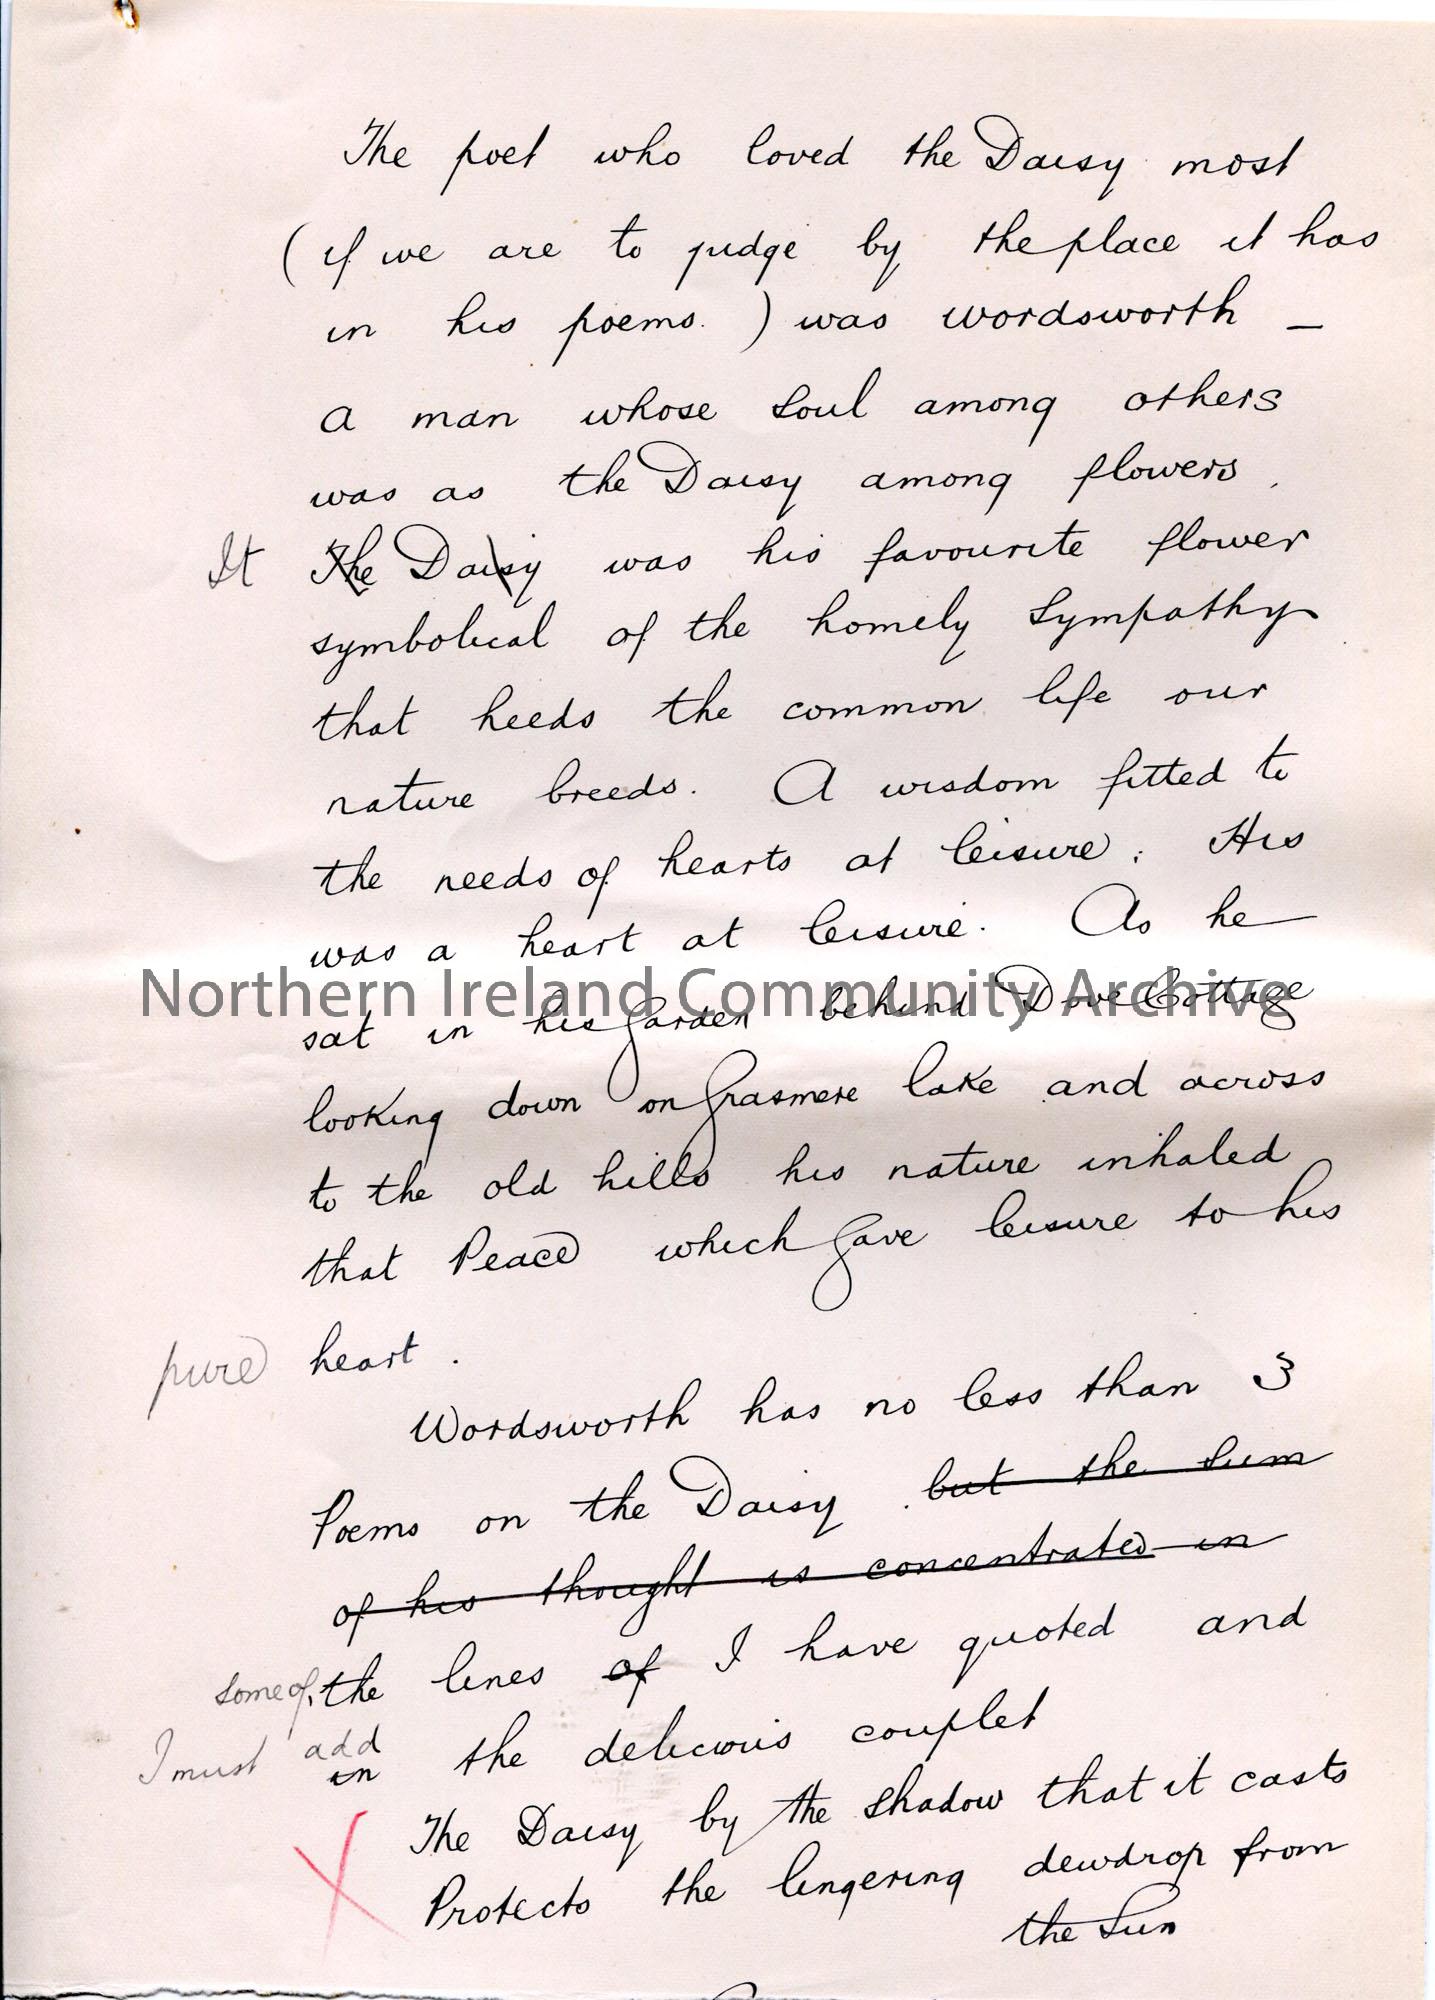 The poet who loved the Daisy most
(if we are to judge by the place it has
in his poems.) was Wordsworth –
a man whose soul among others
was as the Daisy among flowers.
It The Daisy was his favourite flower
symbolical of the homely sympathy
that heeds the common life our
nature breeds. A wisdom fitted to
the needs of hearts at leisure. His
was a heart at leisure. As he
Northern Ireland Community Archive
sat in his garden behind Dove Cottage
looking down on Grasmere lake and across
to the old hills his nature inhaled
that Peace which gave leisure to his
pure heart.
Wordsworth has no less than 3
Poems on the Daisy. but the sum
of his thought is concentrated in
some of, the lines of I have quoted and
I must add in the delicious couplet
X The Daisy by the shadow that it casts
Protects the lingering dewdrop from
the Sun